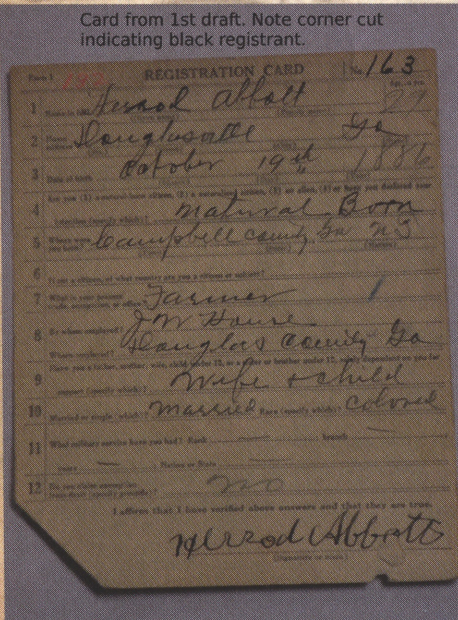 Card from 1st draft. Note corner cut
indicating black registrant.
Form 1 REGISTRATION CARD No. 163
1 Abbott 29
2 Douglasville Ga
3 Date of birth October 19th 1886
4 Are you (1) a natural-born citizen, (2) a naturalized citizen, (3) an alien, (4) or have you declared your
intention (specify which)? Natural Born
5 Where were you born? Campbell County Ga
6 If not a citizen, of what country are you a citizen or subject?
7 What is your present trade, occupation, or office? Farmer
8 By whom employed? J W House
Where employed? Douglas County Ga
9 Have you a father, mother, wife, child under 12, or a sister or brother under 12, solely dependent on you for
support (specify which)? Wife & child
10 Married or single (which)? Married Race (specify which)? Colored
11 What military service have you had? Rank — branch —
years — Nation or State —
12 Do you claim exemption from draft (specify grounds)? No
I affirm that I have verified above answers and that they are true.
Abbott
(Signature or mark)